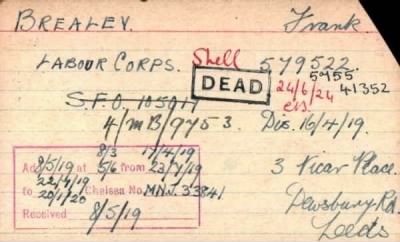 BREALEY. Frank
LABOUR CORPS. Shell 579522.
DEAD 5955
24/6/24 41352
S.F.O. 105017
4/MB/9753. Dis. 16/4/19.
8/3 17/4/19
Adm 8/5/19 at 5/6 from 23/7/19
22/7/19
to 20/1/20 Chelsea No. MNJ.33841
Received 8/5/19
3 Vicar Place.
Dewsbury Rd.
Leeds